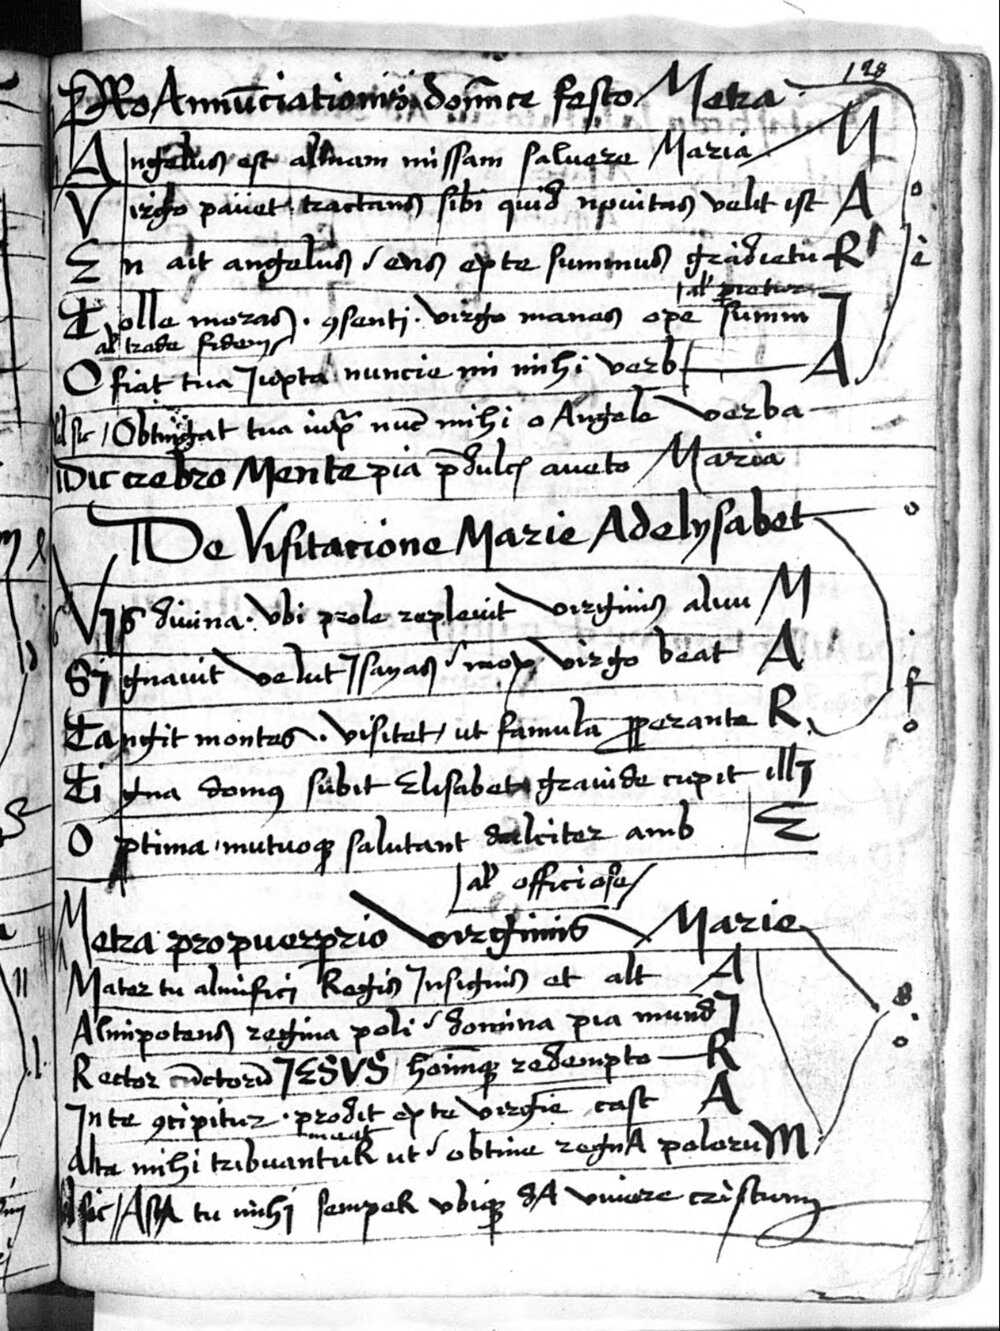 128
PRo Annūciationis domīce festo Metra
Angelus est almam missam saluere Maria M
Virgo pauet tractans sibi quid nouitas velit ist A
En ait angelus / ens ex te summus gradietu R
al'
Tolle moras . ꝯsenti . virgo manes ope summ I
al' trade fidem
O fiat tua Juxta nuncie mi mihi verb A
al sic / Obtingat tua iux̄ nūc mihi o Angele verba
Dic crebro Mente pia p̄dulcꝫ aueto Maria
De Visitacione Marie Adelysabet
VIs diuina . vbi prole repleuit virginis aluu M
SIgnauit velut Jsayas / mox virgo beat A
Tangit montes . visitet / ut famula ꝓperante R
Tigna domꝰ subit Elisabet grauide cupit ill I
Optima / mutuoqꝫ salutant dulciter amb E
al' officiose
Metra pro puerperio virginis Marie
Mater tu almifici Regis Insignis et alt A
Almipotens regina poli / domina pia mund I
Rector cūctorū IESVS / hoīmqꝫ redempto R
In te ꝯcipitur . prodit ex te virgīe cast A
Alta mihi tribuantuR ut / obtine regnA poloru M
al sic / AstA tu mihi sempeR vbiqꝫ dA viuere cristum